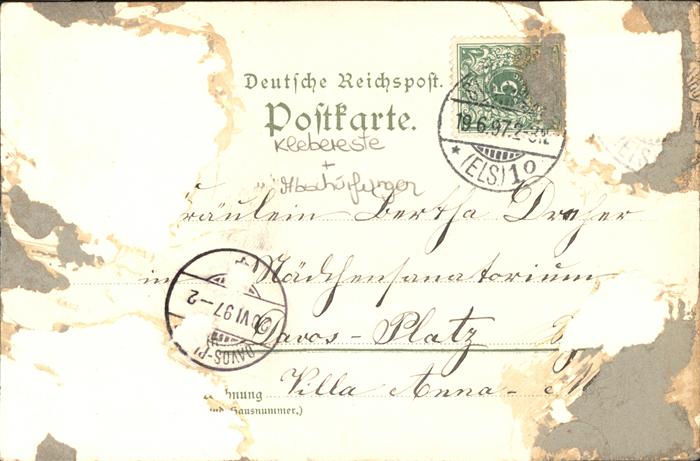 Deutsche Reichspost.
Postkarte.
5
19.6.97. 2-3N.
* (ELS) 1 o
Klebereste
+
Abschürfungen
räulein Bertha Dreher
in Mädchensanatorium
Davos-Platz
VI 97.-2
DAVOS-PL
Villa Anna-
hnung
und Hausnummer.)